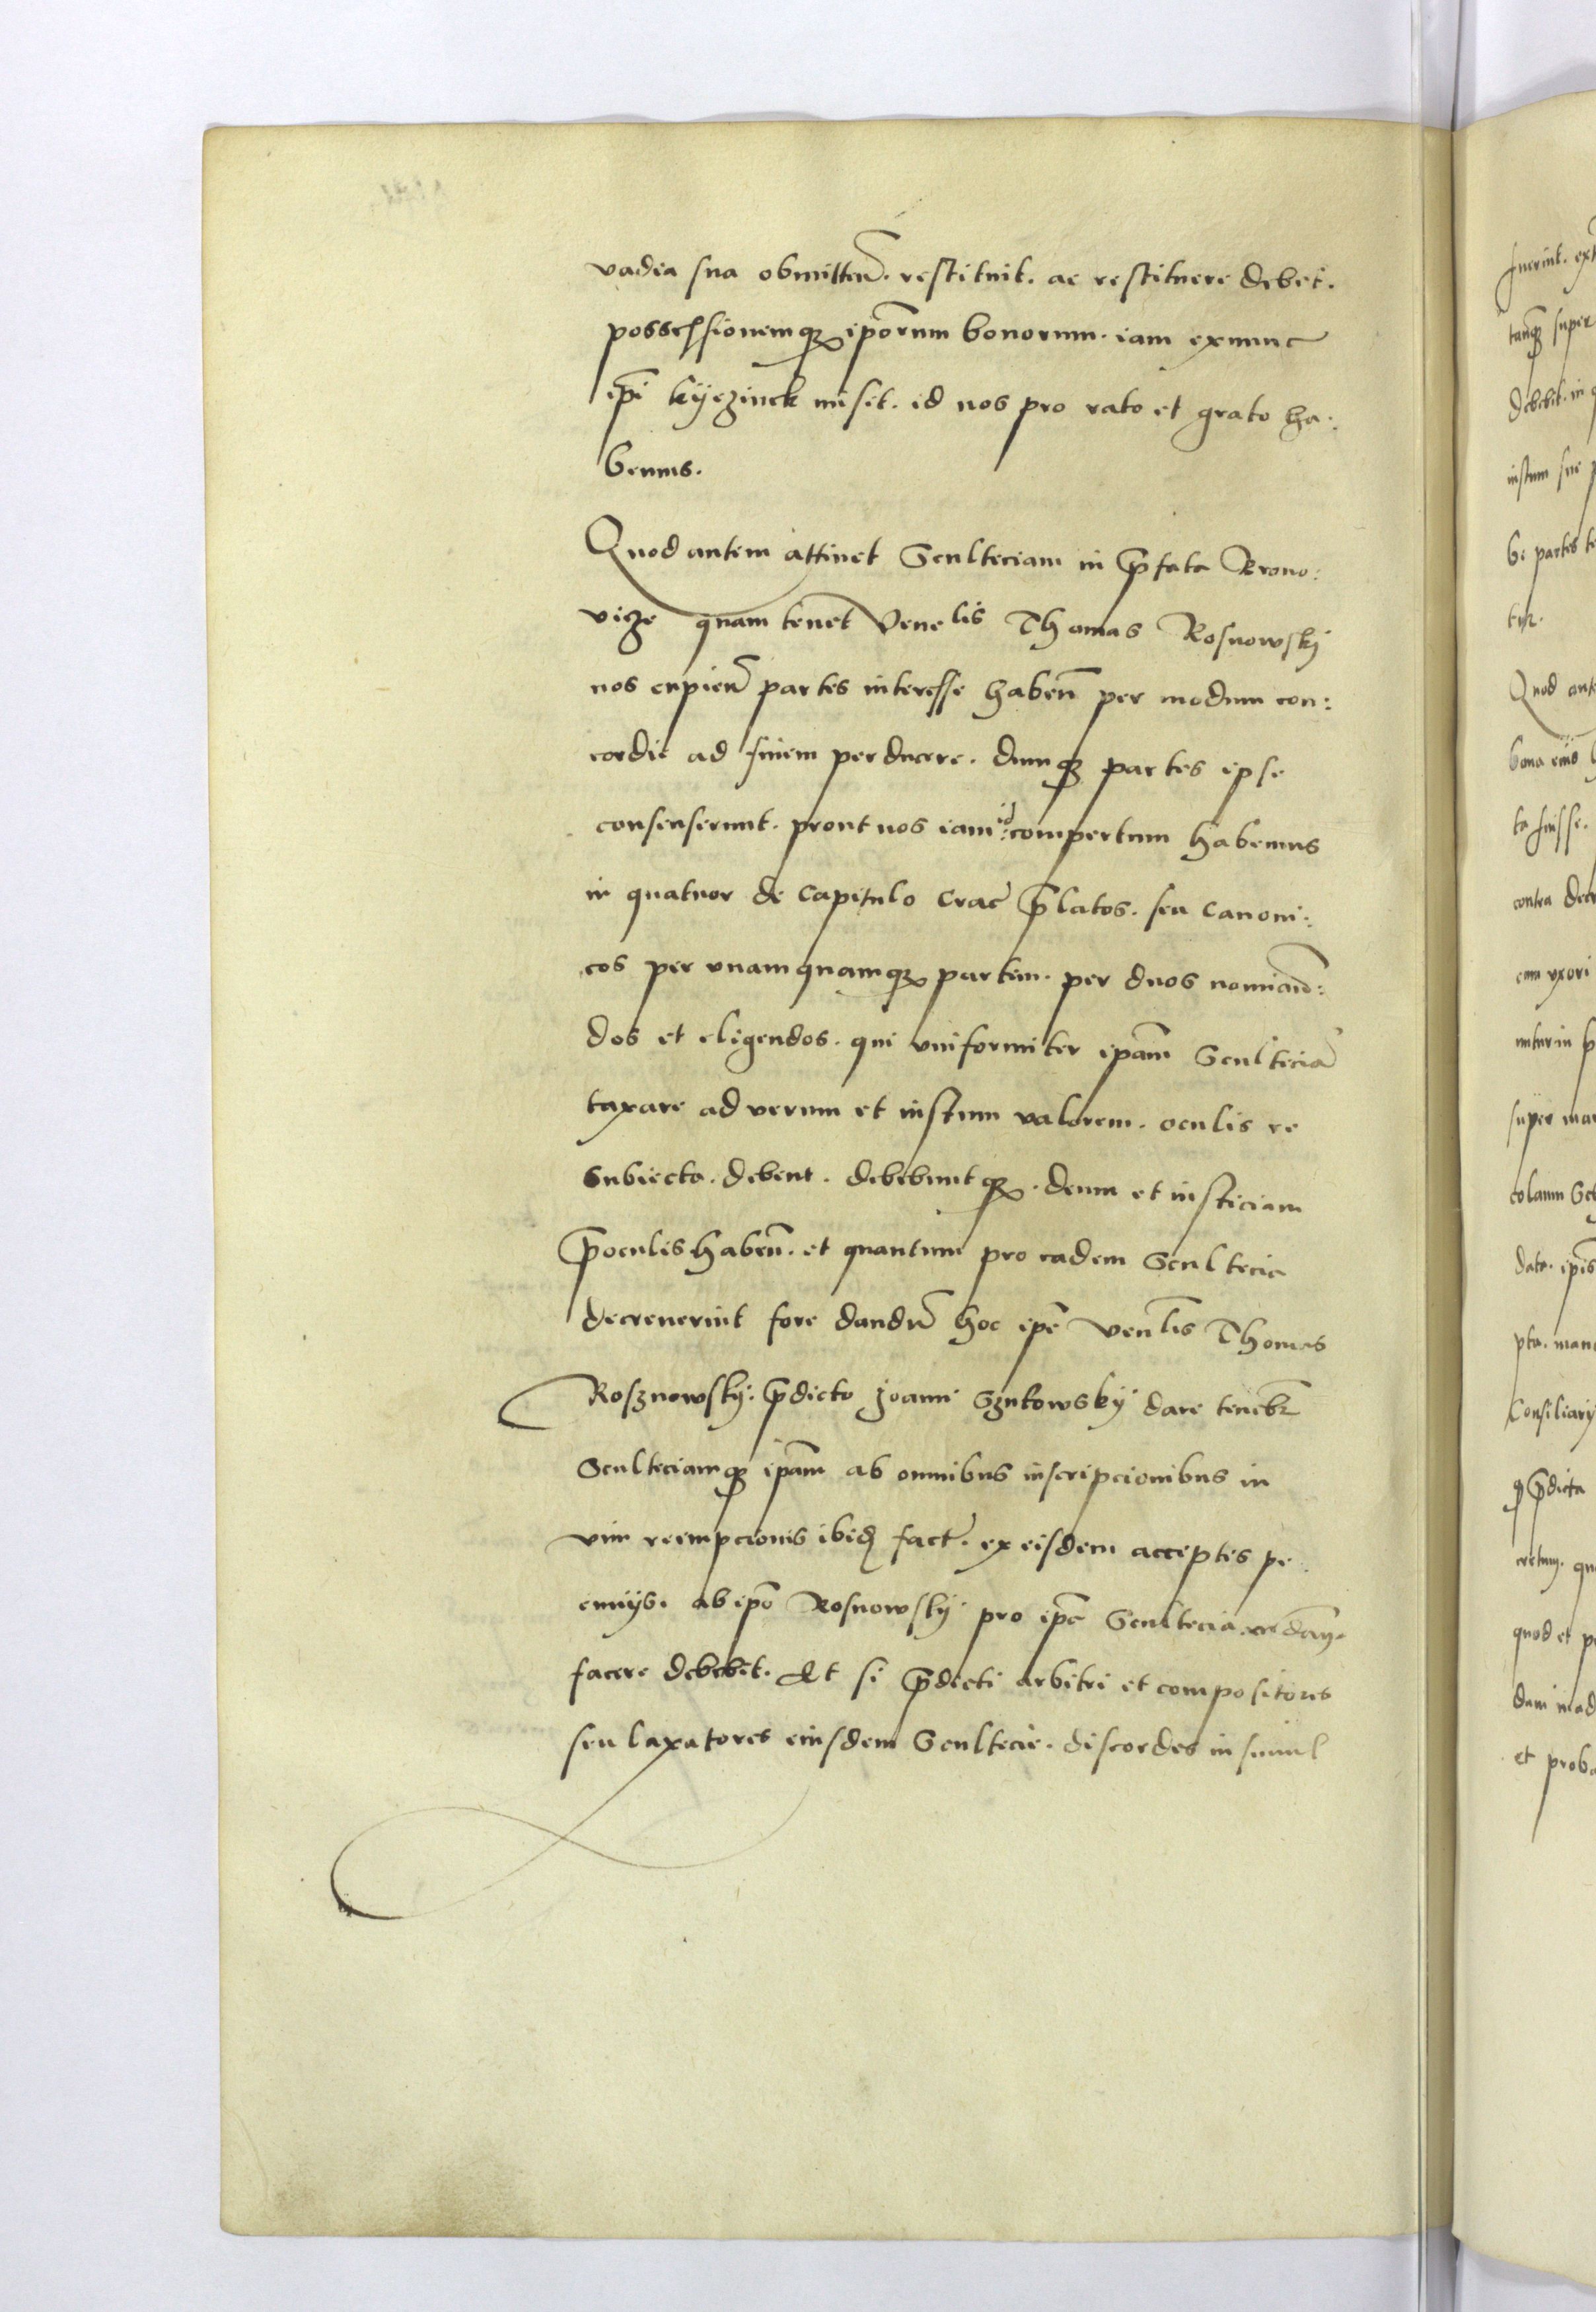 vadia sua obmitten̄. restituit. ac restituere debet.
possessionemqꝫ ip̄orum bonorum. iam exnunc
ip̄i Kyczinck misit. id nos pro rato et grato ha:
bemus.
Quod autem attinet Sculteciam in p̄fata Brono:
vicze quam tenet Venelis Thomas Rosnowskij
nos cupien̄ partes interesse haben̄ per modum con:
cordie ad finem perducere. dumqꝫ partes ipse
consenserunt. prout nos iam id compertum habemus
in quatuor de Capitulo Crac̄ p̄latos. seu Canoni:
cos per vnamquamqꝫ partem. per duos nomian̄:
dos et eligendos. qui vniformiter ip̄am Scultecia᷈
taxare ad verum et iustum valorem. oculis re
subiecta. debent. debebuntqꝫ. deum et iusticiam
p̄oculis haben̄. et quantum pro eadem Scultecia
decreuerint fore dandū hoc ip̄e Ven̄lis Thomas
Rosznowskij. p̄dicto Joanni Szutowskij dare tenebr̄
Sculteciamqꝫ ip̄am ab omnibus inscripcionibus in
vim reempcionis ibid̄ fact̄. ex eisdem acceptis pe
cunijs. ab ip̄o Rosnowskij pro ip̄a Scultecia
facere debebit. Et si p̄dicti arbitri et compositores
seu taxatores eiusdem Scultecie. discordes insimul
fuerint.
tanqꝫ super
debebit. in
iustum sue
be partes
tur.
Quod
bona eius
ta fuisse.
contra
cum vxori
super
colaum
data. ip̄is
pta.
Consiliarij
qꝫ p̄dicta
cretum.
quod et
dam
et